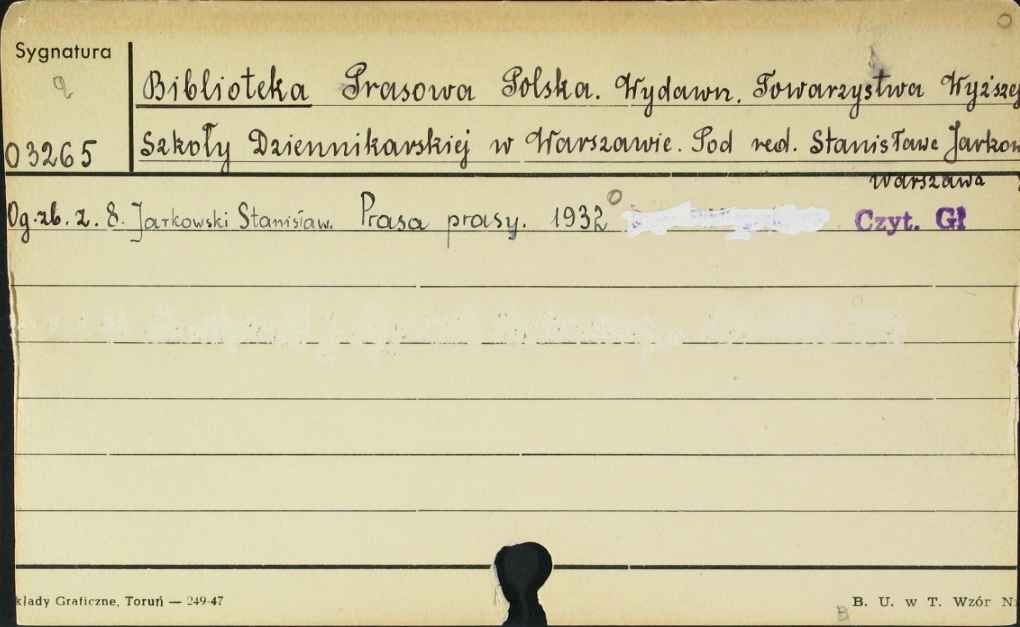 Sygnatura
03265
Biblioteka Prasowa Polska. Wydawn. Towarzystwa Wyższej
Szkoły Dziennikarskiej w Warszawie. Pod red. Stanisława Jarkow
Warszawa
Og. zb. z. 8. Jarkowski Stanisław. Prasa prasy. 1932 Czyt. Gł
kłady Graficzne, Toruń — 249-47
B. U. w T. Wzór N
B